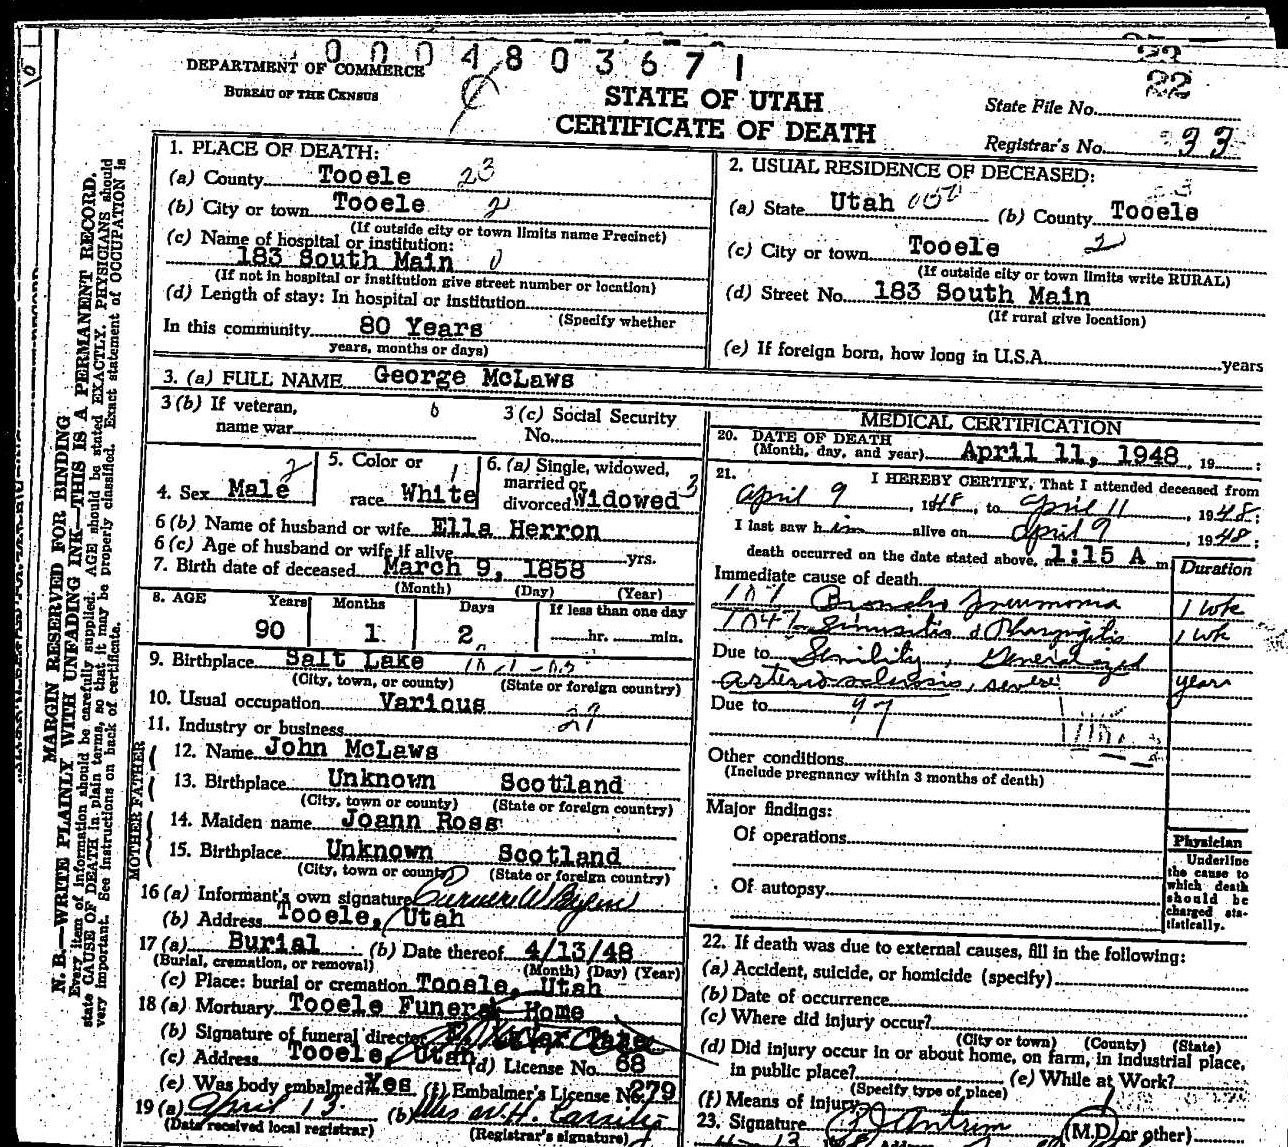 0 0 0 4 8 0 3 6 7 1
22
DEPARTMENT OF COMMERCE
BUREAU OF THE CENSUS
STATE OF UTAH
CERTIFICATE OF DEATH
State File No.
Registrar's No. 33
MARGIN RESERVED FOR BINDING
N. B.—WRITE PLAINLY WITH UNFADING INK—THIS IS A PERMANENT RECORD.
Every item of information should be carefully supplied. AGE should be stated EXACTLY. PHYSICIANS should
state CAUSE OF DEATH in plain terms, so that it may be properly classified. Exact statement of OCCUPATION is
very important. See instructions on back of certificate.
1. PLACE OF DEATH:
(a) County Tooele 23
(b) City or town Tooele 2
(If outside city or town limits name Precinct)
(c) Name of hospital or institution:
183 South Main 0
(If not in hospital or institution give street number or location)
(d) Length of stay: In hospital or institution
(Specify whether
In this community 80 Years
years, months or days)
2. USUAL RESIDENCE OF DECEASED:
(a) State Utah (b) County Tooele
(c) City or town Tooele 2
(If outside city or town limits write RURAL)
(d) Street No. 183 South Main
(If rural give location)
(e) If foreign born, how long in U.S.A. years
3. (a) FULL NAME George McLaws
3 (b) If veteran, name war
3 (c) Social Security No.
4. Sex Male 2
5. Color or race White 1
6. (a) Single, widowed, married or divorced Widowed 3
6 (b) Name of husband or wife Ella Herron
6 (c) Age of husband or wife if alive yrs.
7. Birth date of deceased March 9, 1858
(Month) (Day) (Year)
8. AGE Years Months Days If less than one day
90 1 2 hr. min.
9. Birthplace Salt Lake
(City, town, or county) (State or foreign country)
10. Usual occupation Various
11. Industry or business
FATHER
12. Name John McLaws
13. Birthplace Unknown Scotland
(City, town or county) (State or foreign country)
MOTHER
14. Maiden name Joann Ross
15. Birthplace Unknown Scotland
(City, town or county) (State or foreign country)
16 (a) Informant's own signature
(b) Address Tooele, Utah
17 (a) Burial (b) Date thereof 4/13/48
(Burial, cremation, or removal) (Month) (Day) (Year)
(c) Place: burial or cremation Tooele, Utah
18 (a) Mortuary Tooele Funeral Home
(b) Signature of funeral director
(c) Address Tooele, Utah (d) License No. 68
(e) Was body embalmed Yes (f) Embalmer's License No. 279
19 (a) April 13 (b)
(Date received local registrar) (Registrar's signature)
MEDICAL CERTIFICATION
20. DATE OF DEATH
(Month, day, and year) April 11, 1948, 19 ;
21. I HEREBY CERTIFY, That I attended deceased from
April 9, 1948, to April 11, 1948;
I last saw him alive on April 9, 1948;
death occurred on the date stated above, 1:15 A m.
Duration
Immediate cause of death
107 Broncho Pneumonia 1 wk
104 Sinusitis & Pharyngitis 1 wk
Due to Senility, Generalized
arteriosclerosis, severe years
Due to 97
Other conditions
(Include pregnancy within 3 months of death)
Major findings:
Of operations
Of autopsy
Physician
Underline
the cause to
which death
should be
charged sta-
tistically.
22. If death was due to external causes, fill in the following:
(a) Accident, suicide, or homicide (specify)
(b) Date of occurrence
(c) Where did injury occur?
(City or town) (County) (State)
(d) Did injury occur in or about home, on farm, in industrial place,
in public place? (e) While at Work?
(Specify type of place)
(f) Means of injury
23. Signature (M.D. or other)